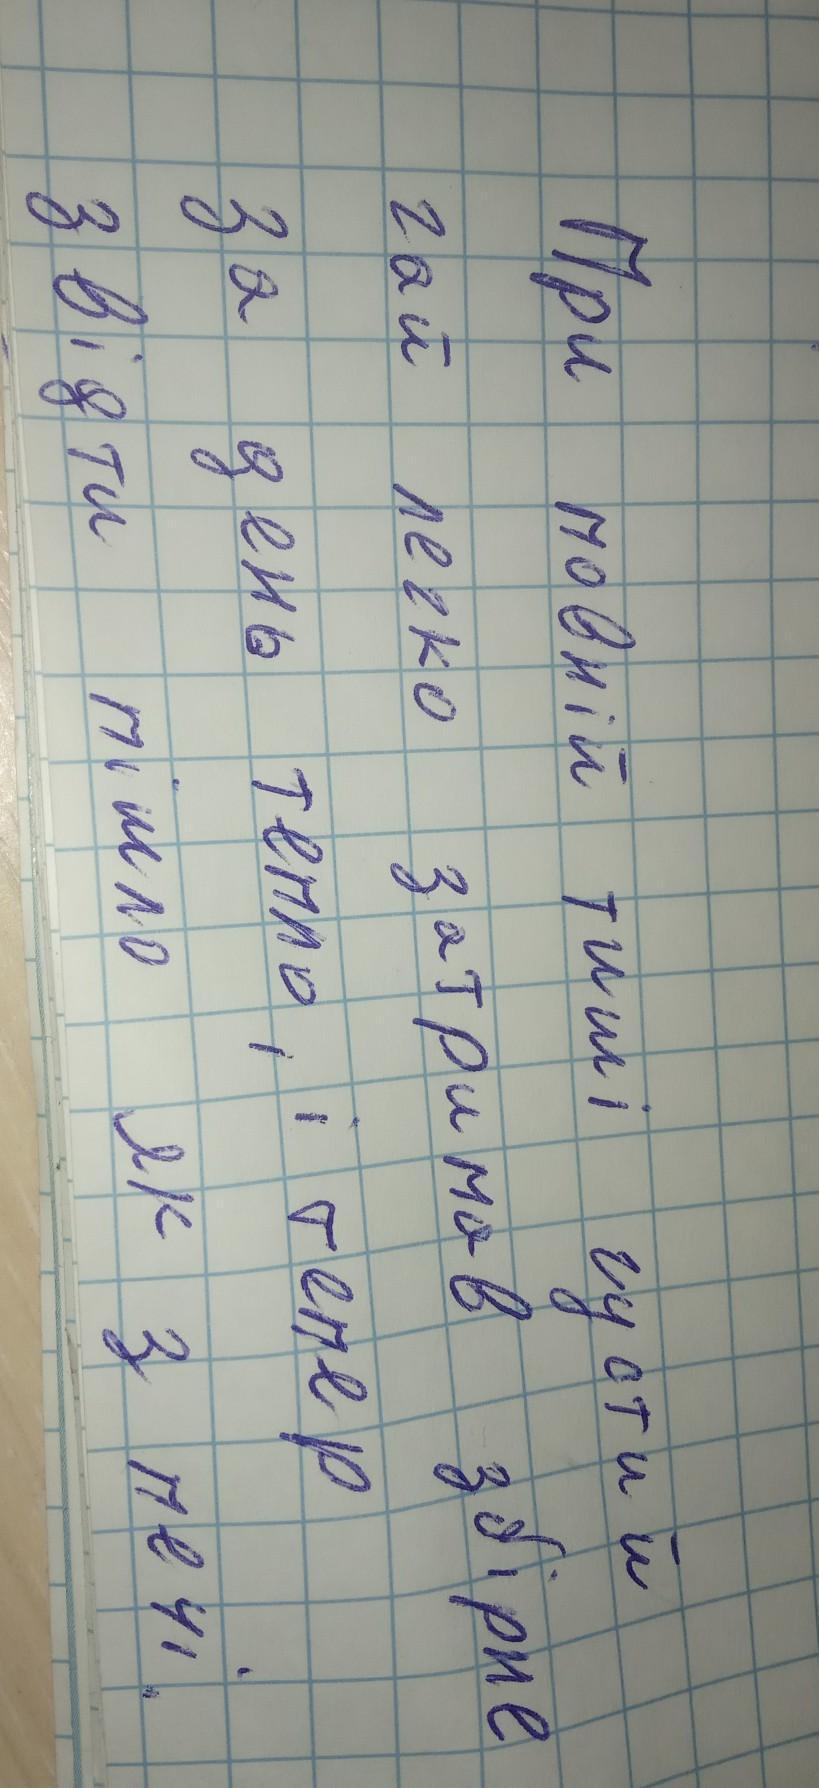 При мовній тиші чустий
гай легко затримав збірне
за день тепло, і тепер
звідти пішло як з печі.